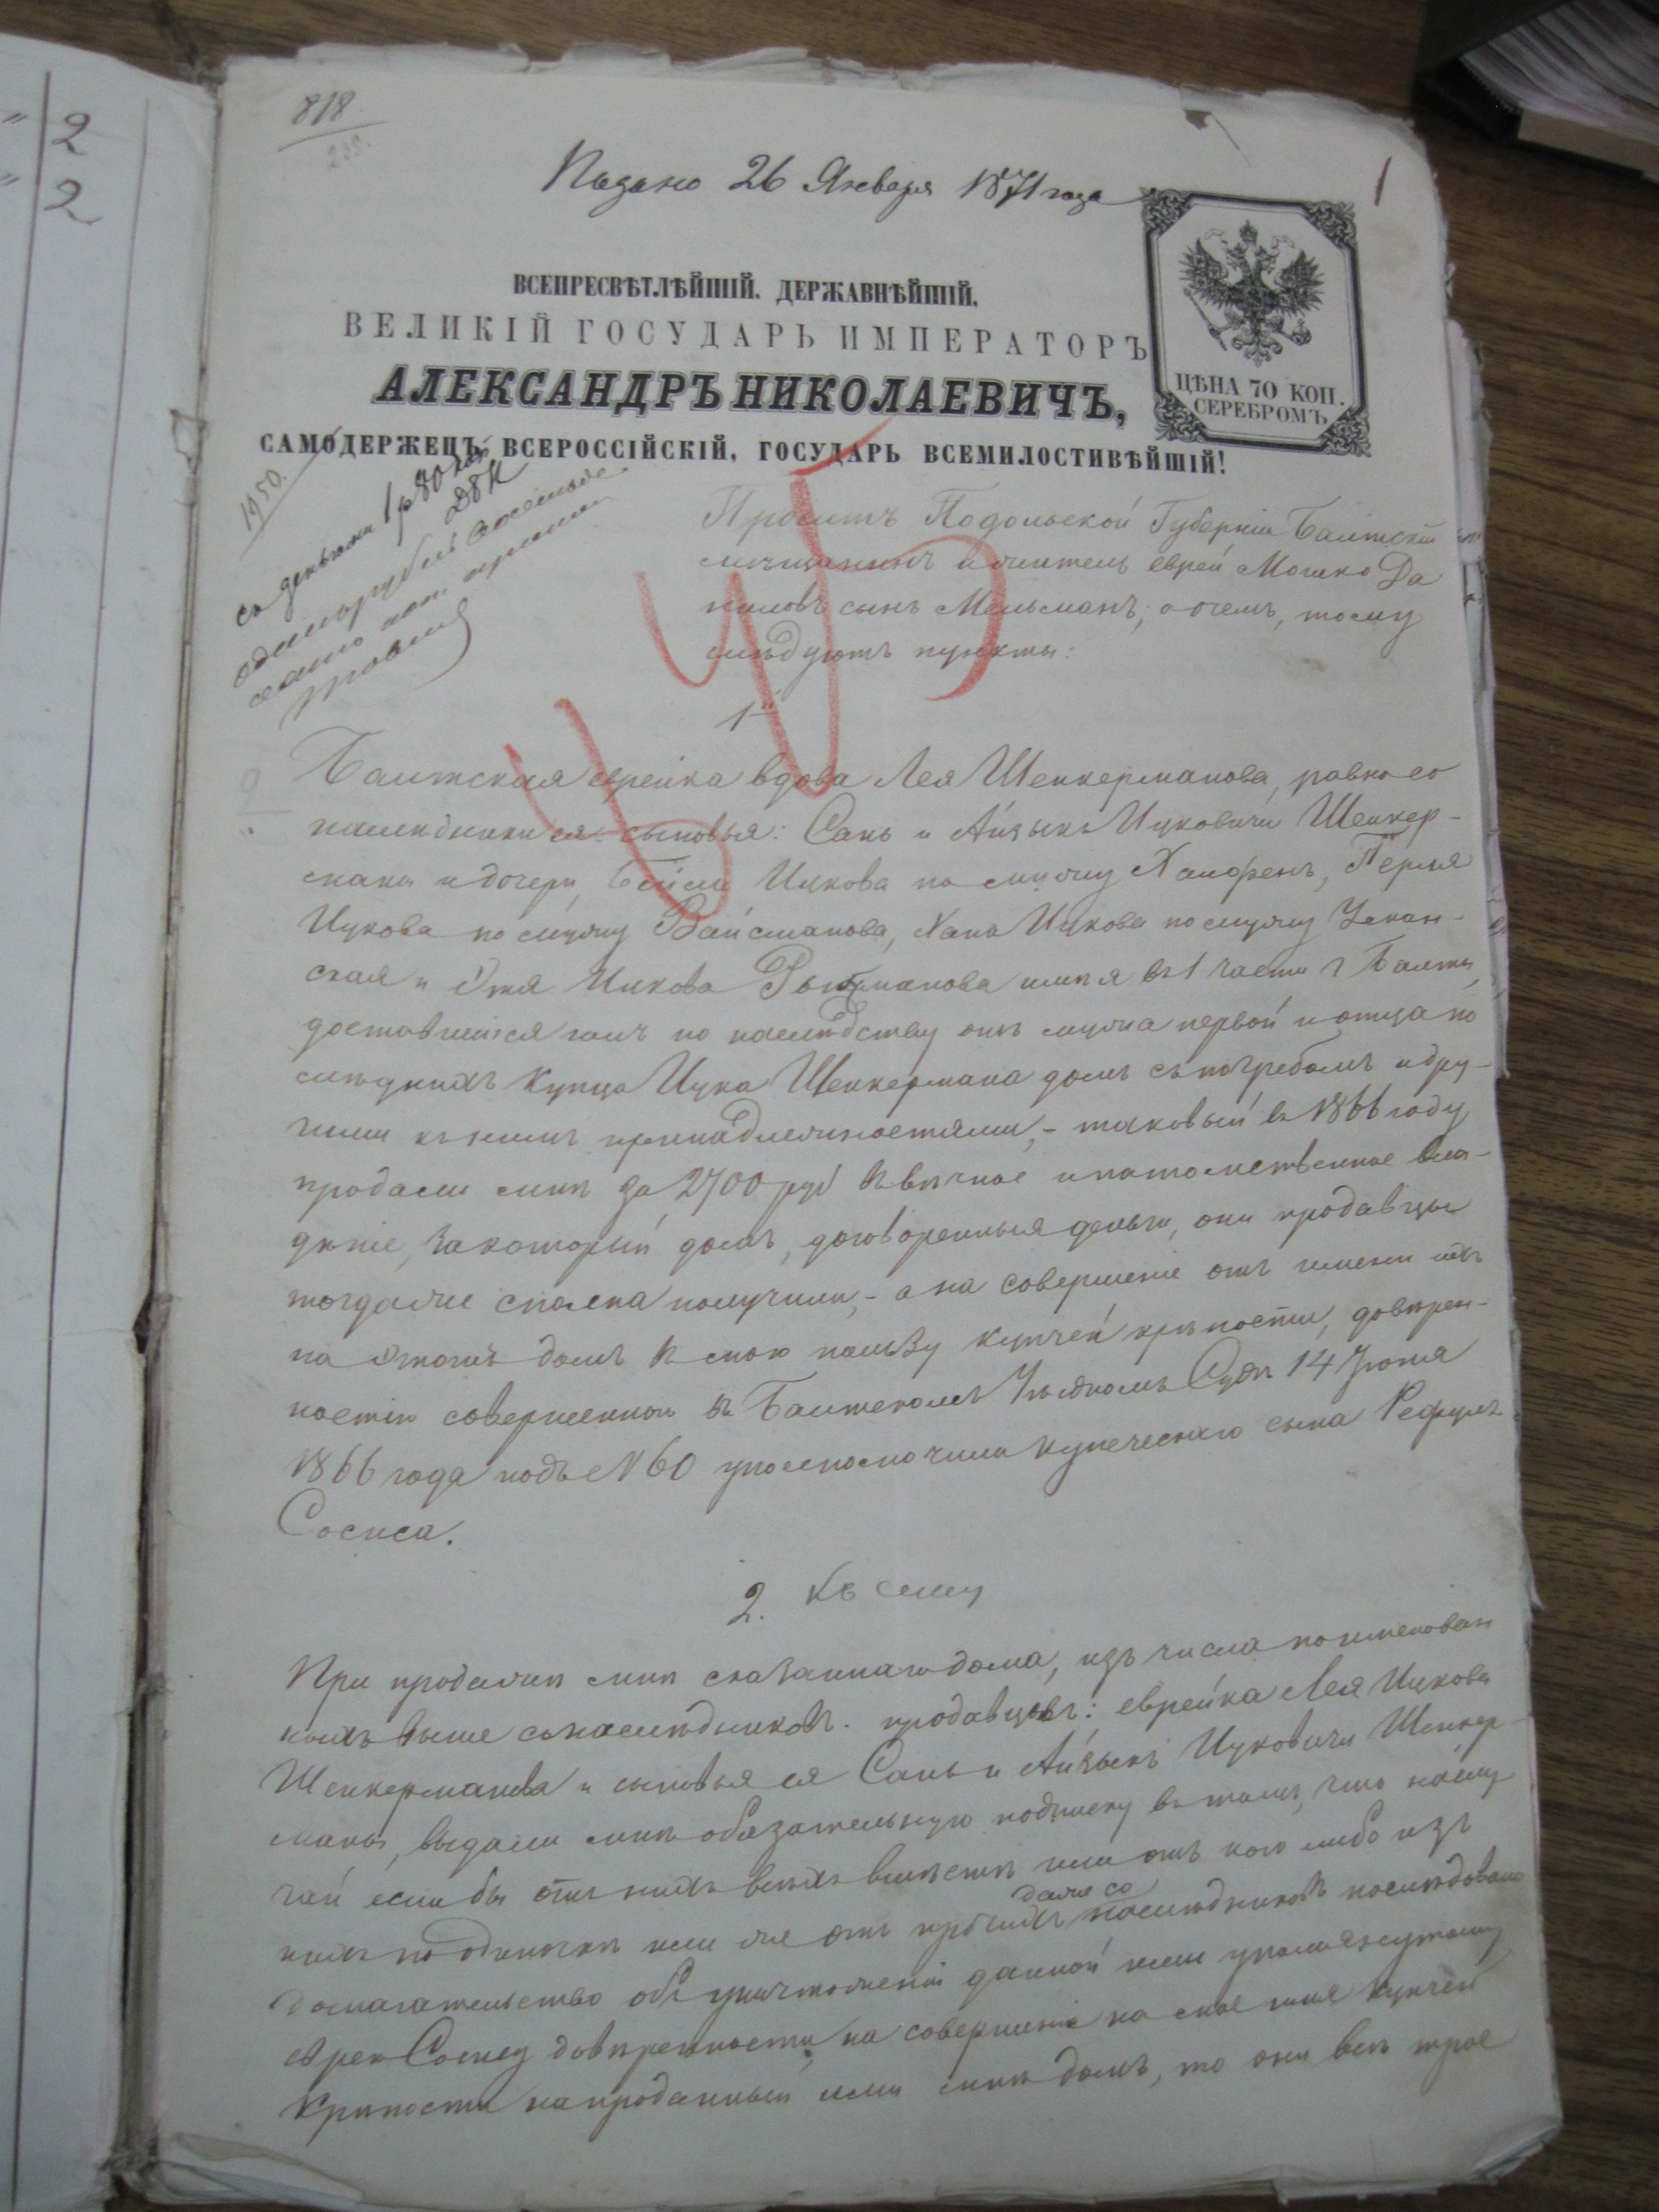 2
2
818
Подано 26 Января 1871 года
1
ВСЕПРЕСВѢТЛѢЙШІЙ, ДЕРЖАВНѢЙШІЙ,
ВЕЛИКІЙ ГОСУДАРЬ ИМПЕРАТОРЪ
АЛЕКСАНДРЪ НИКОЛАЕВИЧЪ,
САМОДЕРЖЕЦЪ ВСЕРОССІЙСКІЙ, ГОСУДАРЬ ВСЕМИЛОСТИВѢЙШІЙ!
ЦѢНА 70 КОП.
СЕРЕБРОМЪ
1950.
съ деньгами 1 р 80 коп
одинъ рубль восемьде
сятъ коп.
Проситъ Подольской Губерніи Балтскій
мѣщанинъ и житель еврей Мошко Да
ниловъ сынъ Мельманъ, а о чемъ, тому
слѣдуютъ пункты:
1й
Балтская еврейка вдова Лея Шенкерманова, равно со
наслѣдники ея сыновья: Сань и Айзыкъ Ицковичи Шенкер-
маны и дочери, Бейла Ицкова по мужу Хамофенъ, Перля
Ицкова по мужу Вайсманова, Хана Ицкова по мужу Уман-
ская и Этя Ицкова имѣя въ 1 части г Балты,
доставшійся имъ по наслѣдству отъ мужа первой и отца по
слѣднихъ купца Ицка Шенкермана домъ съ погребомъ и дру-
гими къ нимъ принадлежностями, - таковый въ 1866 году
продали мнѣ за 2700 руб въ вѣчное и потомственное вла-
дѣніе, за который домъ, договоренныя деньги, они продавцы
тогда же сполна получили, - а на совершеніе отъ имени ихъ
на этотъ домъ въ мою пользу купчей крѣпости, довѣрен-
ностію совершенною въ Балтскомъ Уѣздномъ Судѣ 14 Іюня
1866 года подъ N 60 уполномочили купеческаго сына Рефула
Сосиса.
2. Къ сему
При продажѣ мнѣ сказаннаго дома, изъ числа поименован
ныхъ выше сонаслѣдниковъ продавцовъ: еврейка Лея Ицкова
Шенкерманова и сыновья ея Сань и Айзыкъ Ицковичи Шенкер-
маны, выдали мнѣ обязательную подписку въ томъ, что на слу
чай если бы отъ нихъ всѣхъ вмѣстѣ или отъ кого либо изъ
нихъ по одиночкѣ или же отъ прочихъ даже со наслѣдниковъ послѣдовало
домагательство объ уничтоженіи данной ими упомянутому
еврею Сосису довѣренности на совершеніе на мое имя купчей
крѣпости на проданный ими мнѣ домъ, то они всѣ трое